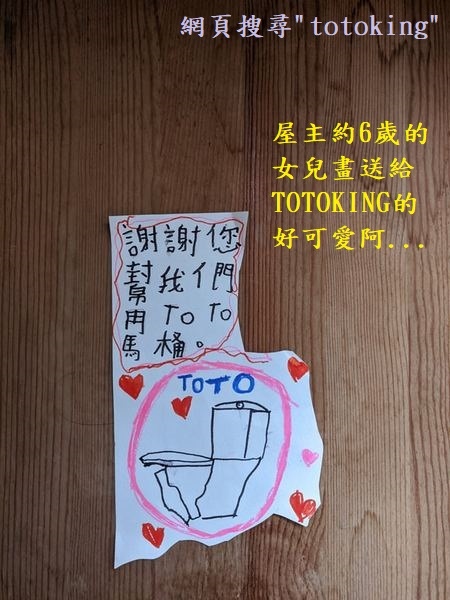 網頁搜尋"totoking"
屋主約6歲的
女兒畫送給
TOTOKING的
好可愛阿...
謝謝您
幫我們
用TOTO
馬桶。
TOTO